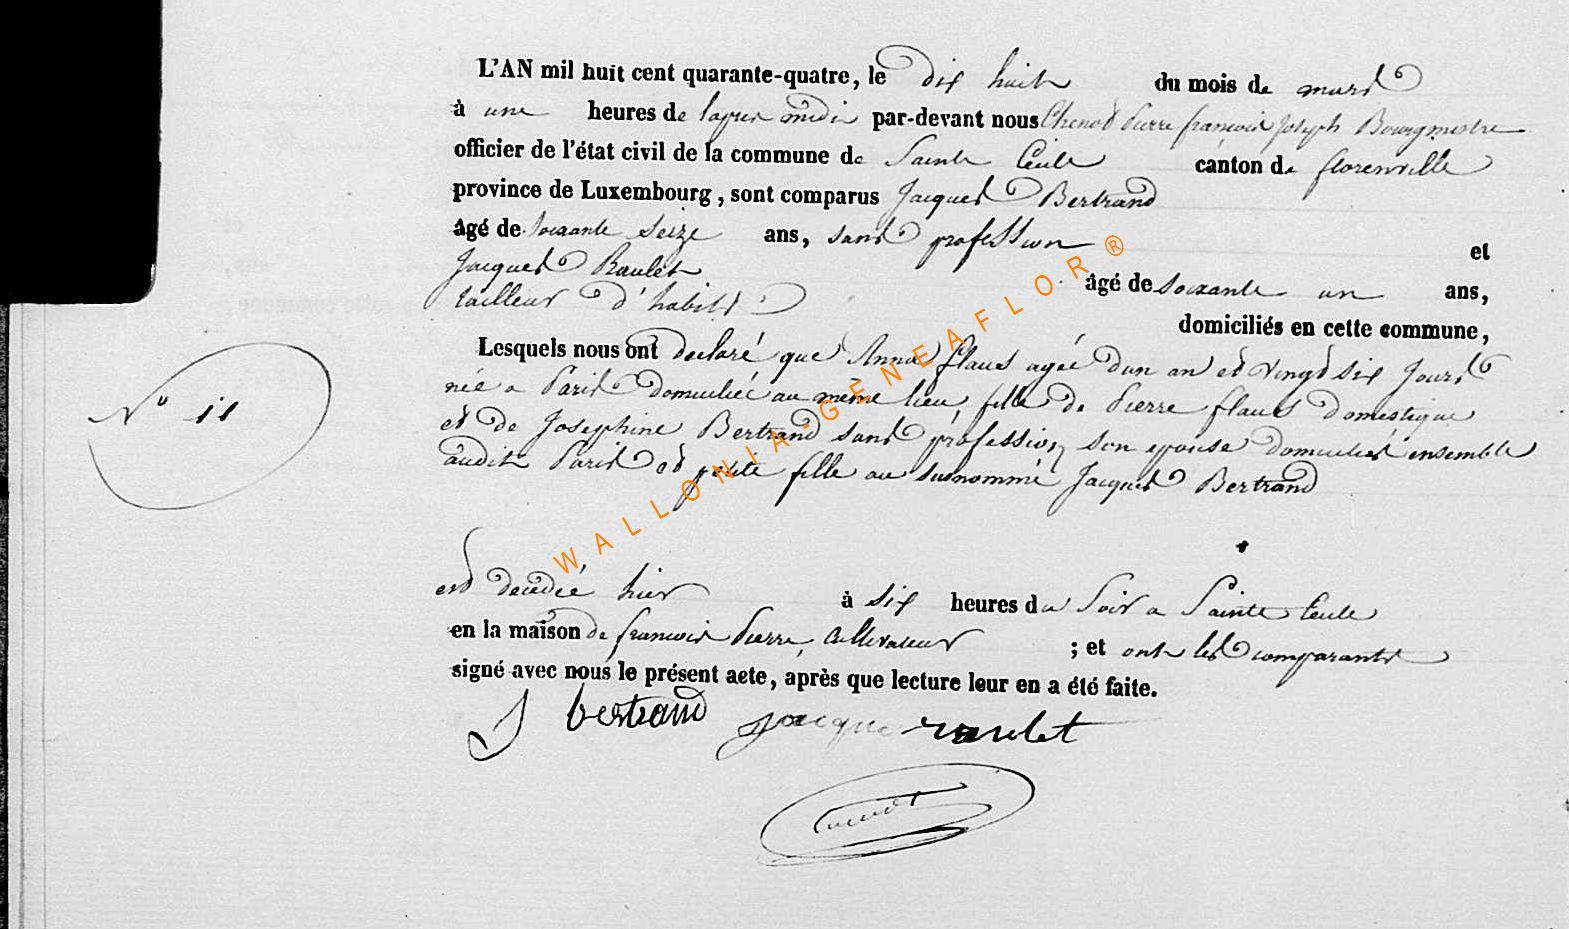 L'AN mil huit cent quarante-quatre, le dix huit du mois de mars
à une heures de laprès midi par-devant nous Chenot Pierre françois Joseph Bourgmestre
officier de l'état civil de la commune de Sainte Cécile canton de florenville
province de Luxembourg, sont comparus Jacques Bertrand
âgé de soixante seize ans, sans profession et
Jacques Raulet
âgé de soixante un ans,
tailleur d'habits
domiciliés en cette commune,
Lesquels nous ont declaré que Anna flaus agée dun an et vingt six jours
née a Paris domiciliée au meme lieu, fille de Pierre flaus domestique
et de Josephine Bertrand sans profession son epouse domiciliés ensemble
audit Paris et petite fille au susnommé Jacques Bertrand
N° 11
est decedée hier à six heures du Soir a Sainte Cecile
en la maison de francois Pierre, Cultivateur ; et ont les comparants
signé avec nous le présent acte, après que lecture leur en a été faite.
J bertrand jacque raulet
Chenot
WALLONIA-GENEAFLOR®